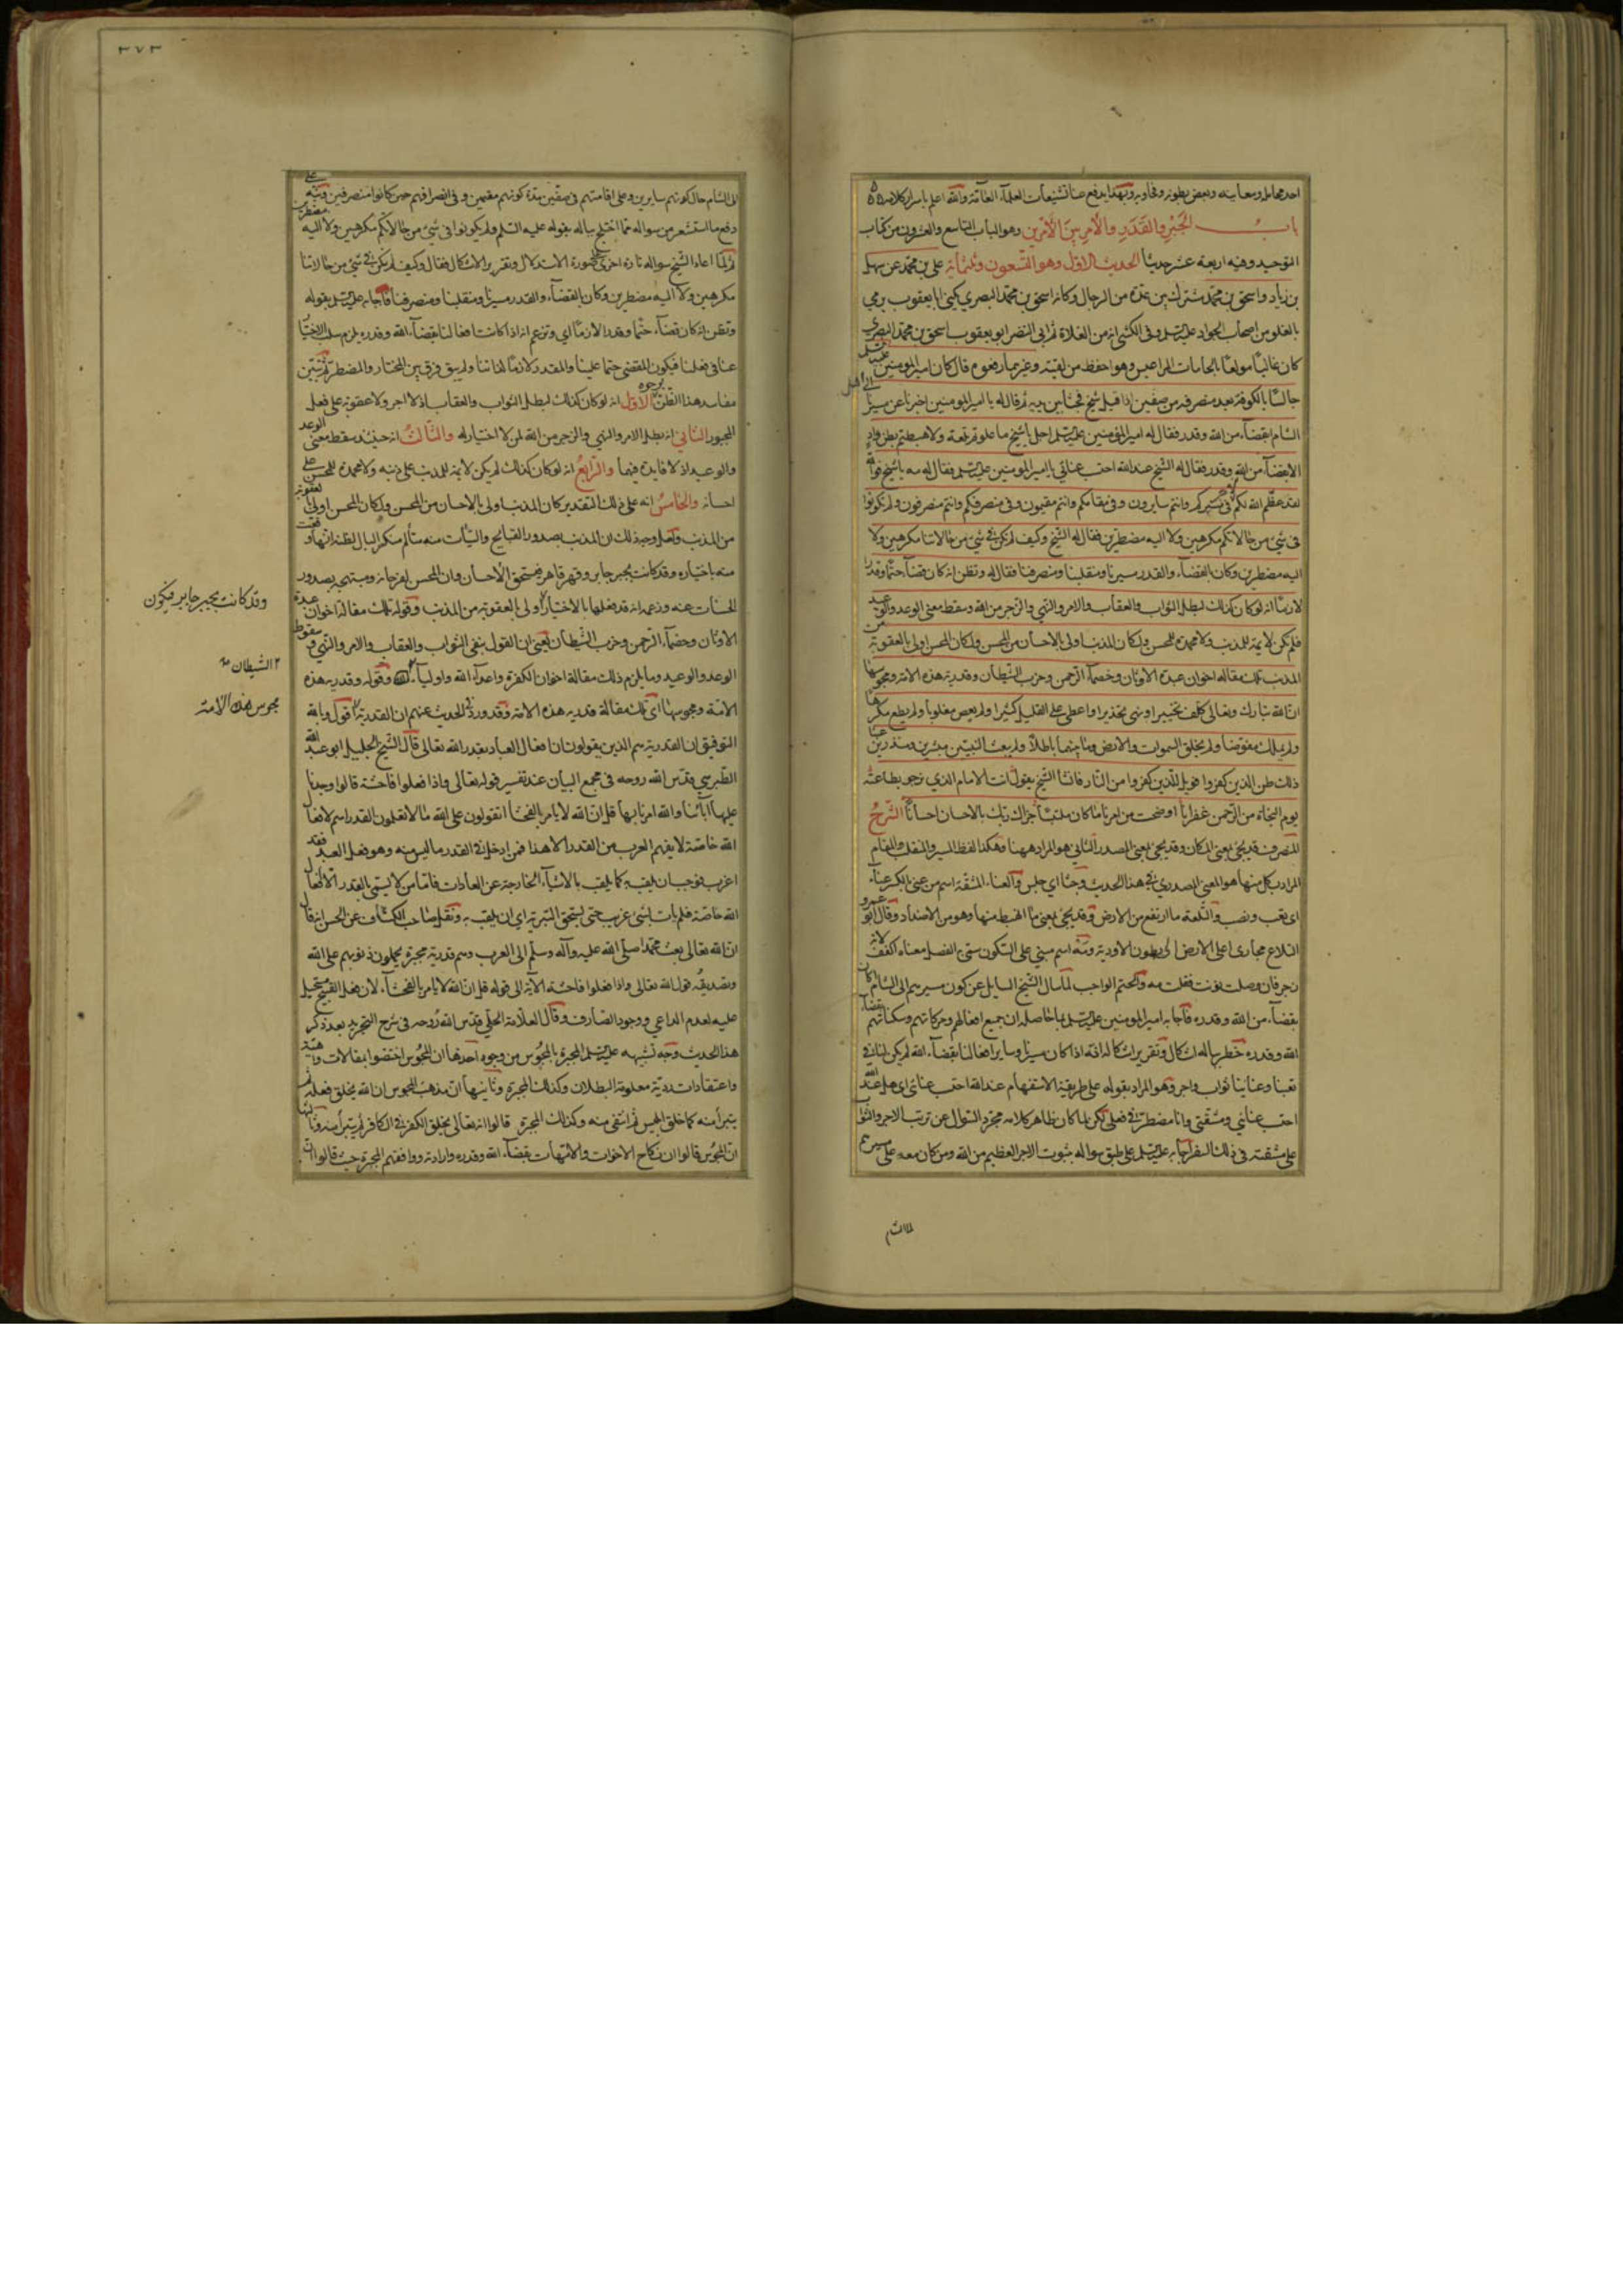 احد محامله ومعانيه وبعض بطونه وتحاويه وبهذا يدفع عنا تشنيعات العلماء العامة والله اعلم باسرار كلامه
باب الجبر والقدر والامر بين الامرين وهو الباب التاسع والعشرون من كتاب
التوحيد وفيه اربعة عشر حديثا الحديث الاول وهو التسعون وثلثمائة علي بن محمد عن سهل
بن زياد واسحق بن محمد مشترك بين عدة من الرجال وكانه اسحق بن محمد البصري يكنى ابا يعقوب يرمي
بالغلو من اصحاب الجواد عليه السلم وفي الكشي انه من الغلاة ثم ابي النضر ابو يعقوب اسحق بن محمد البصري
كان غاليا مولعا بالحمامات المراعيش وهو احفظ من لقيته وغيرهما رفعوه قال كان امير المومنين عليه السلم
جالسا بالكوفة بعد منصرفه من صفين اذ اقبل شيخ فجثا بين يديه ثم قال له يا امير المومنين اخبرنا عن مسيرنا الى اهل
الشام ابقضاء من الله وقدر فقال له امير المؤمنين عليه السلم اجل يا شيخ ما علوتم تلعة ولا هبطتم بطن واد
الا بقضاء من الله وقدر فقال له الشيخ عند الله احتسب عنائي يا امير المومنين عليه السلم فقال له مه يا شيخ فوالله
لقد عظم الله لكم في مسيركم وانتم سايرون وفي مقامكم وانتم مقيمون وفي منصرفكم وانتم منصرفون ولم تكونوا
في شيء من حالاتكم مكرهين ولا اليه مضطرين فقال له الشيخ وكيف لم نكن في شيء من حالاتنا مكرهين ولا
اليه مضطرين وكان بالقضاء والقدر مسيرنا ومنقلبنا ومنصرفنا فقال له وتظن انه كان قضاء حتما وقدرا
لازما انه لو كان كذلك لبطل الثواب والعقاب والامر والنهي والزجر من الله وسقط معنى الوعد والوعيد
فلم تكن لائمة للمذنب ولا محمدة للمحسن ولكان المذنب اولى بالاحسان من المحسن ولكان المحسن اولى بالعقوبة من
المذنب تلك مقالة اخوان عبدة الاوثان وخصماء الرحمن وحزب الشيطان وقدرية هذه الامة ومجوسها
ان الله تبارك وتعالى كلف تخييرا ونهى تحذيرا واعطى على القليل كثيرا ولم يعص مغلوبا ولم يطع مكرها
ولم يملك مفوضا ولم يخلق السموات والارض وما بينهما باطلا ولم يبعث النبيين مبشرين ومنذرين عبثا
ذلك ظن الذين كفروا فويل للذين كفروا من النار فانشا الشيخ يقول انت الامام الذي نرجو بطاعته
يوم النجاة من الرحمن غفرانا اوضحت من امرنا ما كان ملتبسا جزاك ربك بالاحسان احسانا الشرح
المنصرف قد يجئ بمعنى المكان وقد يجئ بمعنى المصدر والثاني هو المراد ههنا وهكذا لفظ المسير والمنقلب والمقام
المراد بكل منها هو المعنى المصدري في هذا الحديث وجثا اي جلس والعناء المشقة اسم من عني بالكسر عناء
اي تعب ونصب والتلعة ما ارتفع من الارض وقد يجئ بمعنى ما انهبط منها وهو من الاضداد وقال ابو عمرو
التلاع مجاري اعلى الارض الى بطون الاودية ومه اسم مبني على السكون سمي به الفعل معناه اكفف لانه
زجر فان وصلت نونت فقلت مه والحتم الواجب لما سال الشيخ السايل عن كون مسيرهم الى الشام اكان
بقضاء من الله وقدره فاجابه امير المومنين عليه السلم بما حاصله ان جميع افعالهم وحركاتهم وسكناتهم بقضاء
الله وقدره خطر بباله اشكال وتقرير اشكاله انه اذا كان مسيرنا وساير افعالنا بقضاء الله لم يكن لنا في
تعبنا وعنائنا ثواب واجر وهو المراد بقوله على طريقة الاستفهام عند الله احتسب عنائي اي هل عند الله
احتسب عنائي ومشقتي وانا مضطر في فعلي لكن لما كان ظاهر كلامه مجرد السوال عن ترتب الاجر والثواب
على مشقته في ذلك السفر اجابه عليه السلم على طبق سواله بثبوت الاجر العظيم من الله ومن كان معه على مسيرهم
٣٧٣
الى الشام حال كونهم سايرين وعلى اقامتهم في صفين مدة كونهم مقيمين وفي انصرافهم حين كانوا منصرفين ونبه على
دفع ما استشعر من سواله مما اختلج بباله بقوله عليه السلم ولم يكونوا في شيء من حالاتكم مكرهين ولا اليه مضطرين
ثم لما اعاد الشيخ سواله تارة اخرى في صورة الاستدلال وتقرير الاشكال فقال وكيف لم نكن في شيء من حالاتنا
مكرهين ولا اليه مضطرين وكان بالقضاء والقدر مسيرنا ومنقلبنا ومنصرفنا فاجابه عليه السلم بقوله
وتظن انه كان قضاء حتما وقدرا لازما اي وتزعم انه اذا كانت افعالنا بقضاء الله وقدره يلزم سلب الاختيار
عنا في فعلنا فيكون المقضي حتما علينا والمقدر لازما لذاتنا ولم يبق فرق بين المختار والمضطر ثم بين
مفاسد هذا الظن بوجوه الاول انه لو كان كذلك لبطل الثواب والعقاب اذ لا اجر ولا عقوبة على فعل
المجبور الثاني انه بطل الامر والنهي والزجر من الله لمن لا اختيار له والثالث انه حينئذ سقط معنى الوعد
والوعيد اذ لا فايدة فيهما والرابع انه لو كان كذلك لم يكن لائمة للمذنب على ذنبه ولا محمدة للمحسن على
احسانه والخامس انه على ذلك التقدير كان المذنب اولى بالاحسان من المحسن ولكان المحسن اولى بالعقوبة
من المذنب ولعل وجه ذلك ان المذنب بصدور القبائح والسيئات منه متألم منكسر البال لظنه انها وقعت
منه باختياره وقد كانت بجبر جابر وقهر قاهر فيستحق الاحسان وان المحسن لفرحانه ومبتهج بصدور
الحسنات عنه وزعمه انه قد فعلها بالاختيار اولى بالعقوبة من المذنب وقوله تلك مقالة اخوان عبدة
الاوثان وخصماء الرحمن وحزب الشيطان يعني ان القول بنفي الثواب والعقاب والامر والنهي وسقوط
الوعد والوعيد وما يلزم ذلك مقالة اخوان الكفرة واعداء الله واولياء وقوله وقدرية هذه
الامة ومجوسها اي تلك مقالة قدرية هذه الامة وقد ورد في الحديث عنهم ان القدرية اقول وبالله
التوفيق ان القدرية هم الذين يقولون ان افعال العباد بقدر الله تعالى قال الشيخ الجليل ابو عبد الله
الطبرسي قدس الله روحه في مجمع البيان عند تفسير قوله تعالى واذا فعلوا فاحشة قالوا وجدنا
عليها آبائنا والله امرنا بها قل ان الله لا يامر بالفحشاء اتقولون على الله ما لا تعلمون القدر اسم لافعال
الله خاصة لا يفهم العرب من القدر الا هذا فمن ادخل في القدر ما ليس منه وهو فعل العبد فقد
اغرب فوجب ان يلقب به كما يلقب بالاشياء الخارجة عن العادات فاما من لا يسمي بالقدر الا افعال
الله خاصة فلم يات بشيء غريب حتى يستحق التسرية اي ان يلقب به ونقل صاحب الكشاف عن الحسن انه قال
ان الله تعالى بعث محمدا صلى الله عليه وآله وسلم الى العرب وهم قدرية مجبرة يحملون ذنوبهم على الله
وتصديقه قول الله تعالى واذا فعلوا فاحشة الآية الى قوله قل ان الله لا يامر بالفحشاء لان فعل القبيح مستحيل
عليه لعدم الداعي ووجود الصارف وقال العلامة الحلي قدس الله روحه في شرح التجريد بعد ذكر
هذا الحديث وجه تشبيهه عليه السلم المجبرة بالمجوس من وجوه احدها ان المجوس اختصوا بمقالات واهية
واعتقادات ردية معلومة البطلان وكذلك المجبرة وثانيها ان مذهب المجوس ان الله يخلق فعله ثم
يتبرأ منه كما خلق ابليس ثم انتفى منه وكذلك المجبرة قالوا انه تعالى يخلق الكفر في الكافر ثم يتبرأ منه وثالثها
ان المجوس قالوا ان نكاح الاخوات والامهات بقضاء الله وقدره وارادته ووافقهم المجبرة حيث قالوا ان
وقد كانت بجبر جابر فيكون
الشيطان
مجوس هذه الامة